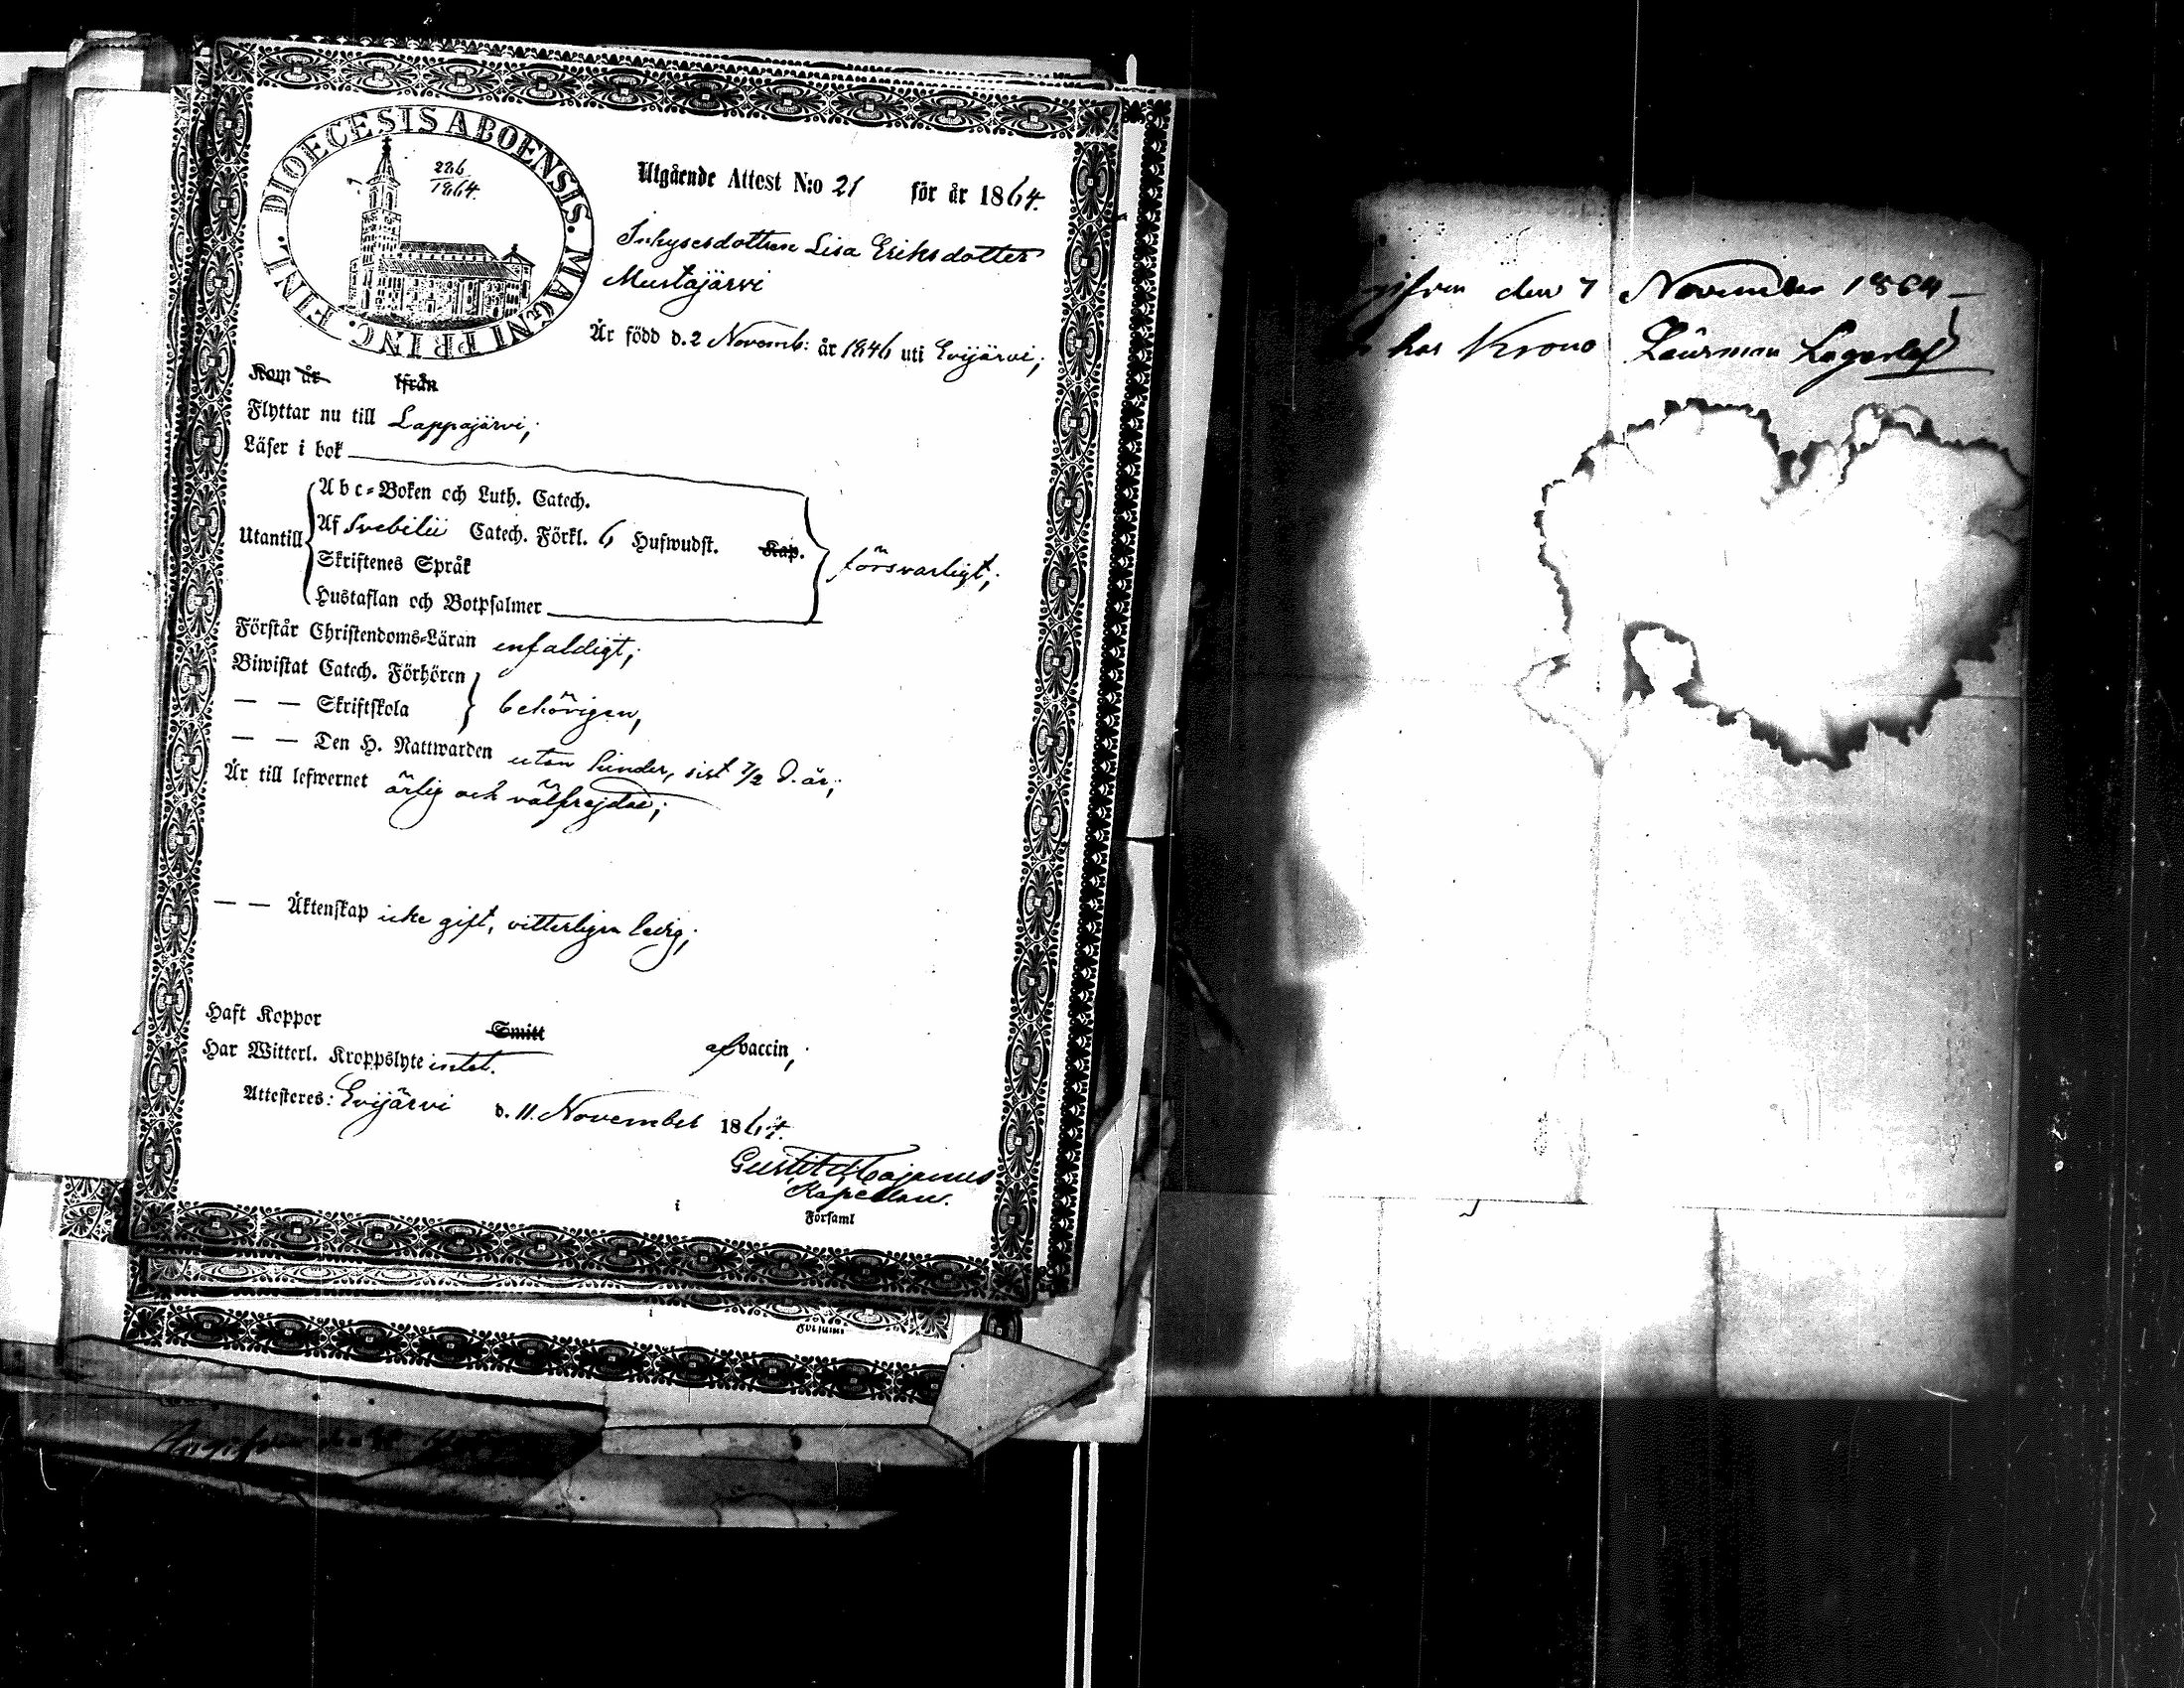 DIOECESIS ABOENSIS. MAGNI PRINC. FINL.
226
1864.
Utgående Attest N:o 21 för år 1864.
Inhysesdottren Lisa Eriksdotter
Mustajärvi
Är född d. 2 Novemb: år 1846 uti Evijärvi;
Kom år ifrån
Flyttar nu till Lappajärvi;
Läser i bok
Abc-Boken och Luth. Catech.
Utantill Af Svebilii Catech. Förkl. 6 Hufwudst. Kap. försvarligt;
Skriftenes Språk
Hustaflan och Botpsalmer
Förstår Christendoms-Läran enfaldigt;
Biwistat Catech. Förhören
— — Skriftskola behörigen,
— — Den H. Nattwarden utan hinder, sist 7/2 d. år;
Är till lefwernet ärlig och välfrejdad;
— — Äktenskap icke gift, vitterligen ledig;
Haft Koppor Smitt af vaccin,
Har Witterl. Kroppslyte intet.
Attesteres: Evijärvi d. 11. November 1864.
Gustaf Cajanus
Kapellan.
i Församl
den 7 November 1864 —
har Krono Länsman